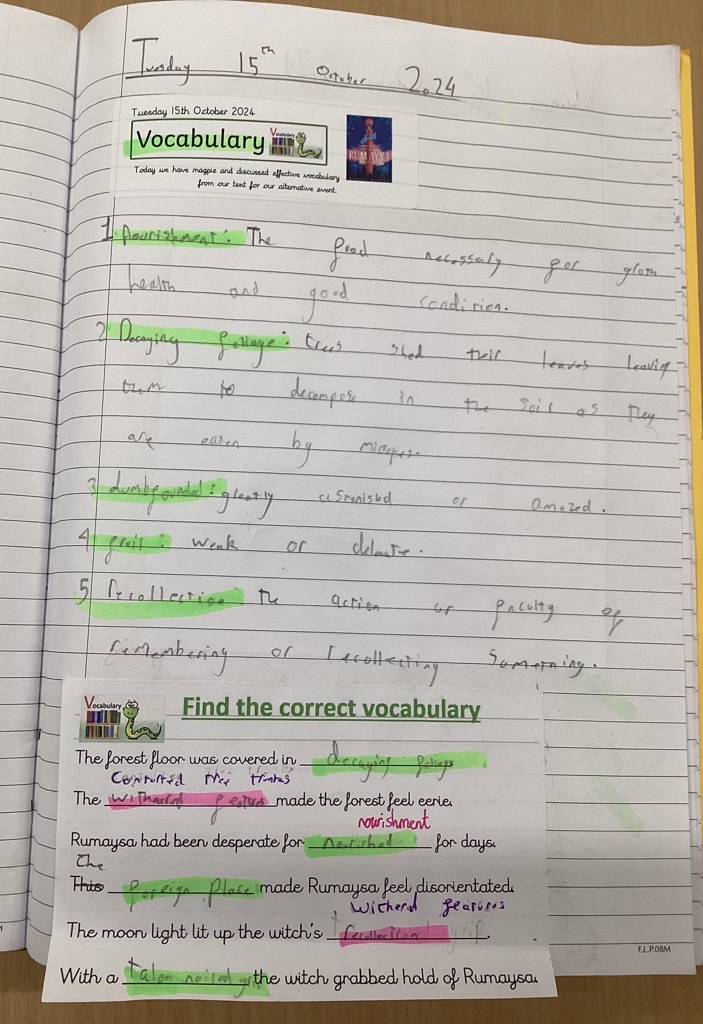 Tuesday 15th October 2024
Tuesday 15th October 2024
Vocabulary
Vocabulary
RUMAYSA
Today we have magpie and discussed effective vocabulary
from our text for our alternative event.
1 nourishment: The food necessary for
health and good condition.
2 Decaying foliage: trees shed their leaves leaving
them to decompose in the soil as they
are eaten by
3 dumbfounded: greatly astonished or amazed.
4 frail: weak or
5 recollection: the action or faculty of
remembering or recollecting something.
Vocabulary
Find the correct vocabulary
The forest floor was covered in decaying foliage
Contorted tree trunks
The withered feature made the forest feel eerie.
nourishment
Rumaysa had been desperate for nourished for days.
The
This foreign place made Rumaysa feel disorientated.
Witherd features
The moon light lit up the witch's recollection.
With a talon nailed the witch grabbed hold of Rumaysa.
F.L.P.08M